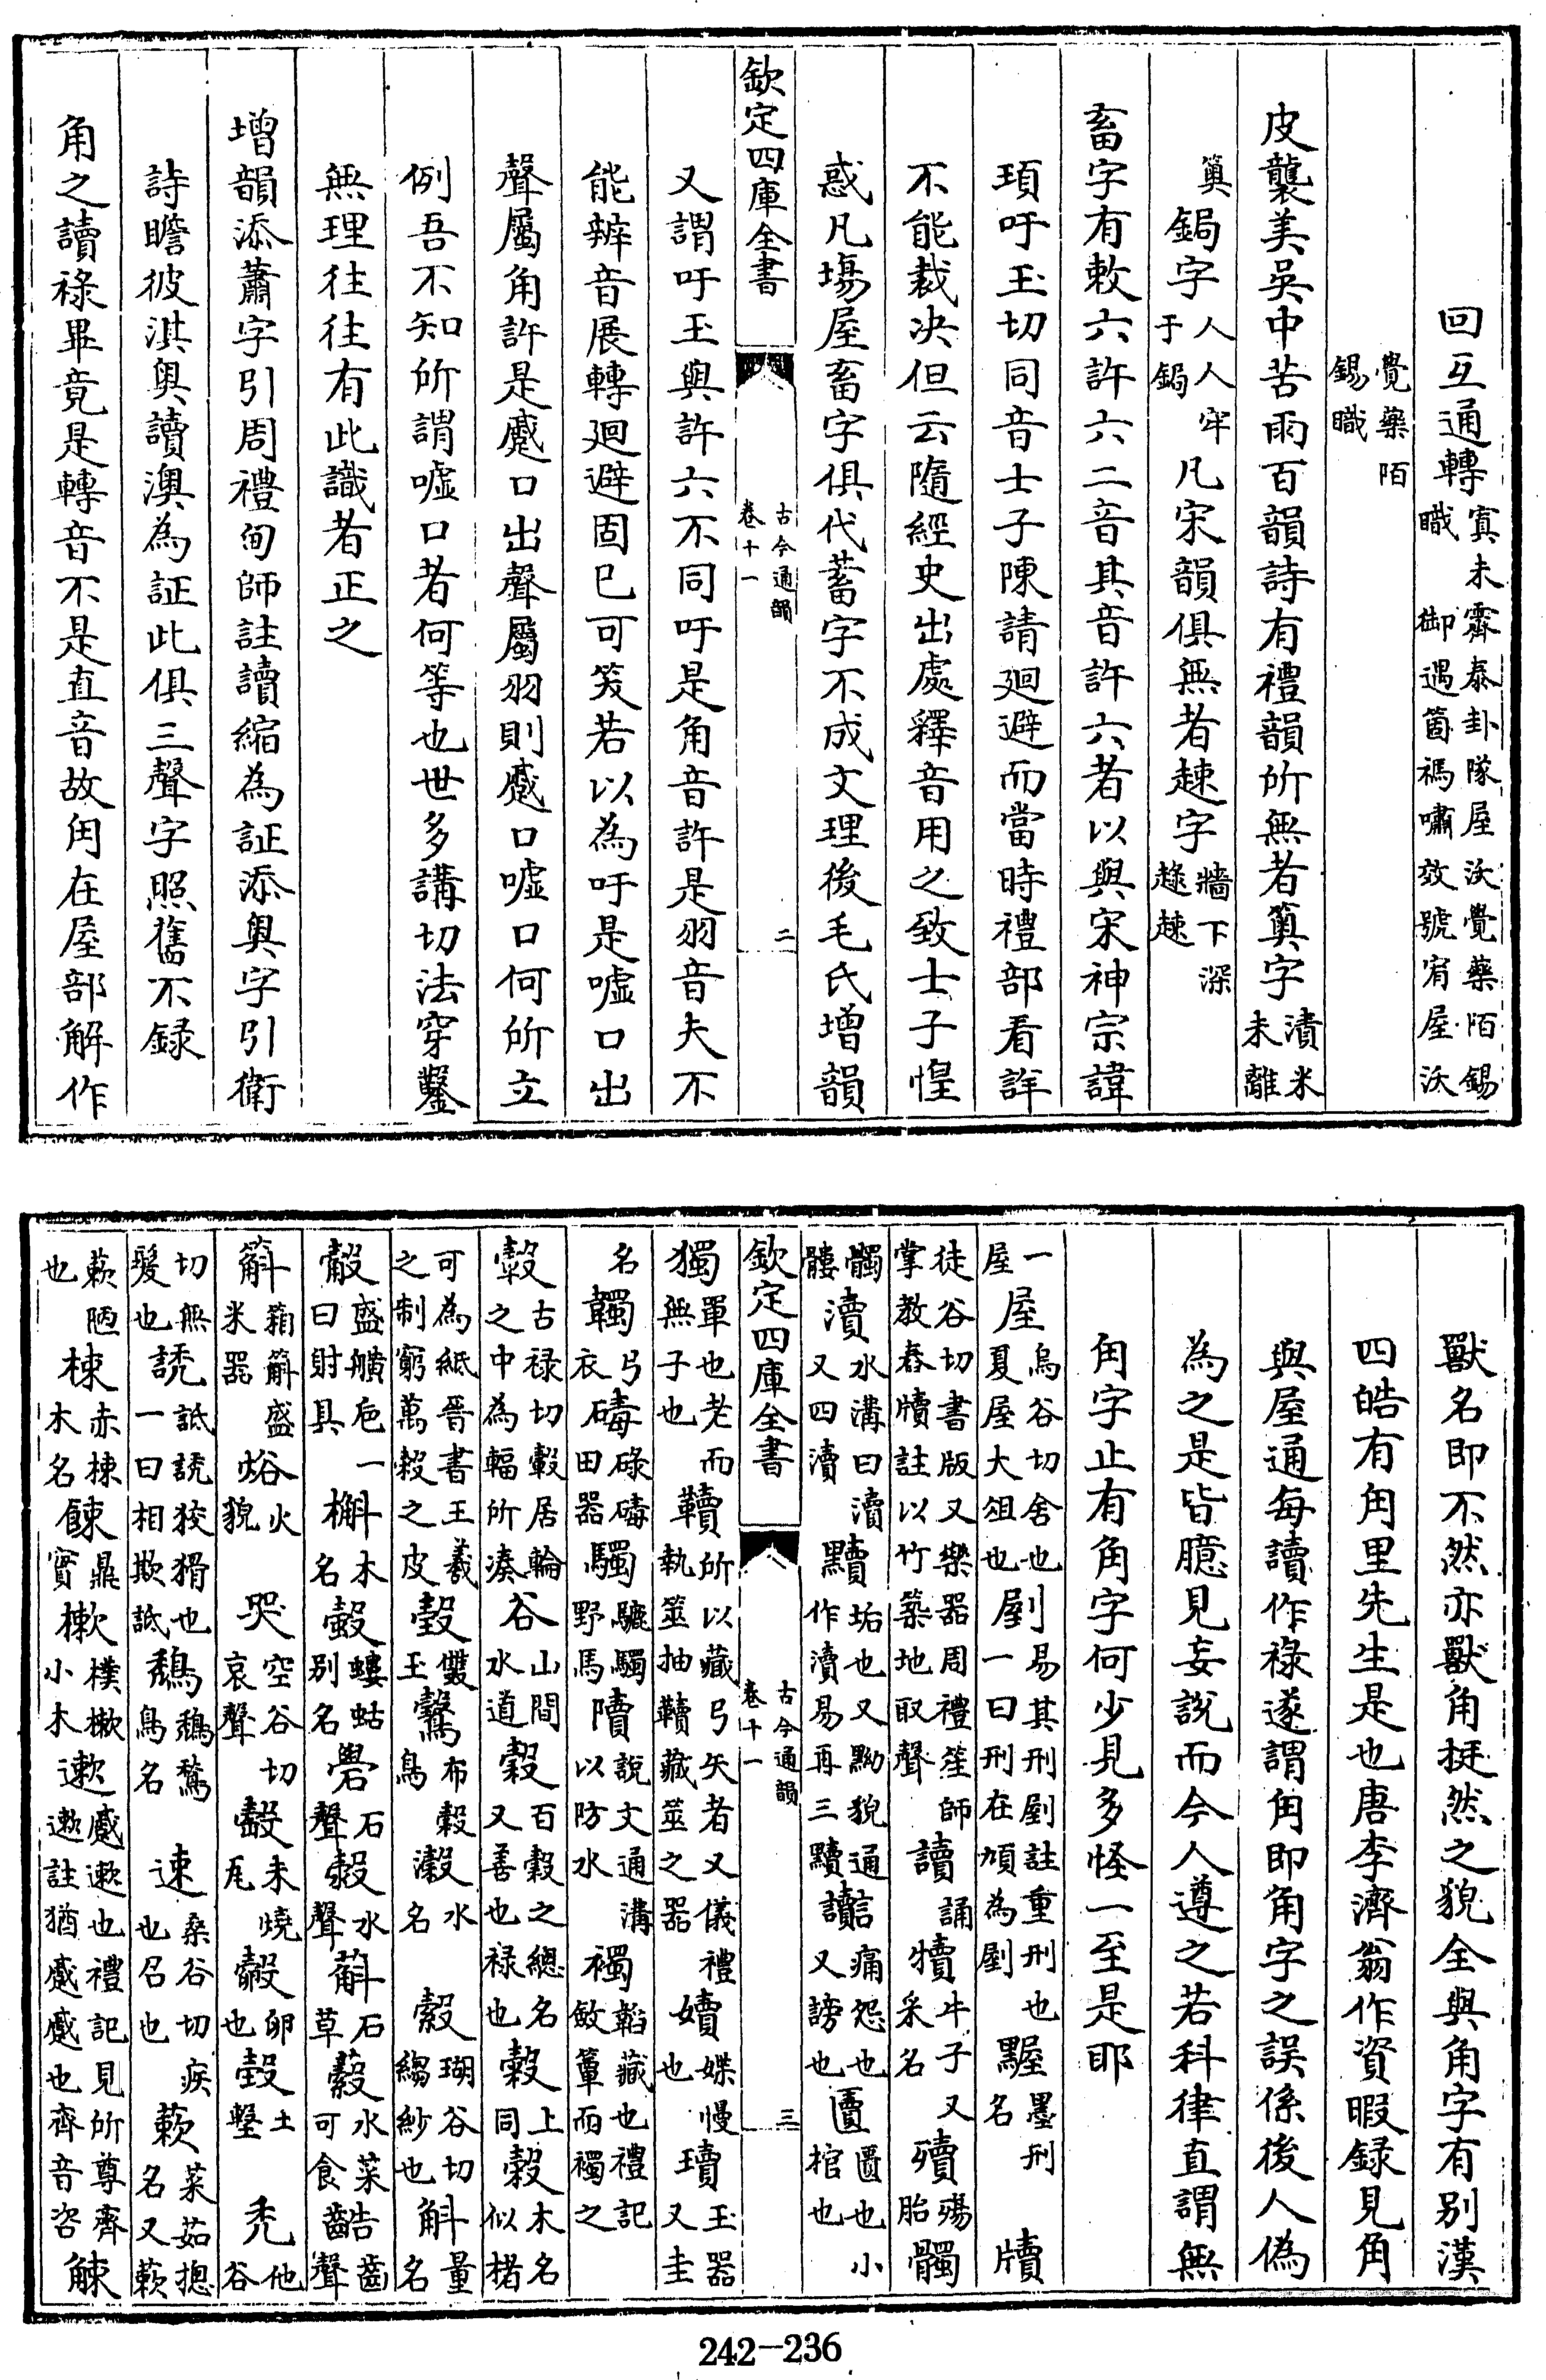 回互通轉寘未霽泰卦隊屋沃覺藥陌錫職　御遇箇禡嘯效號宥屋沃
覺藥陌錫職
皮襲美吳中苦雨百韻詩有禮韻所無者䉛字漬米未離
䉛鋦字人人牢于鋦凡宋韻俱無者趚字牆下深趢趚
畜字有敕六許六二音其音許六者以與宋神宗諱
頊吁玉切同音士子陳請迴避而當時禮部看詳
不能裁决但云隨經史出處釋音用之致士子惶
惑凡場屋畜字俱代蓄字不成文理後毛氏增韻
欽定四庫全書　古今通韻卷十一　二
又謂吁玉與許六不同吁是角音許是羽音夫不
能辨音展轉迴避固已可笑若以為吁是噓口出
聲屬角許是蹙口出聲屬羽則蹙口噓口何所立
例吾不知所謂噓口者何等也世多講切法穿鑿
無理往往有此識者正之
增韻添蕭字引周禮甸師註讀縮為証添奧字引衛
詩瞻彼淇奧讀澳為証此俱三聲字照舊不録
角之讀祿畢竟是轉音不是直音故甪在屋部解作
獸名即不然亦獸角挺然之貌全與角字有别漢
四皓有甪里先生是也唐李濟翁作資暇録見角
與屋通每讀作祿遂謂甪即角字之誤係後人偽
為之是皆臆見妄説而今人遵之若科律直謂無
甪字止有角字何少見多怪一至是耶
一屋屋烏谷切舍也夏屋大俎也剭易其刑剭註重刑也一曰刑在頄為剭䵤墨刑名牘
徒谷切書版又樂器周禮笙師掌教舂牘註以竹築地取聲讀誦犢牛子又采名殰殤胎髑
髑髏瀆水溝曰瀆又四瀆黷垢也又黝貌通作瀆易再三黷讟痛怨也又謗也匵匱也小棺也
欽定四庫全書　古今通韻卷十一　三
獨單也老而無子也韇所以藏弓矢者又儀禮執筮抽韇藏筮之器嬻媟慢也瓄玉器又圭
名韣弓衣碡碌碡田器䮷騼䮷野馬隫説文通溝以防水襡韜藏也禮記斂簟而襡之
轂古禄切轂居輪之中為輻所湊谷山間水道穀百穀之總名又善也禄也糓上同榖木名似楮
可為紙晉書王羲之制窮萬榖之皮瑴雙玉鷇布穀鳥瀔水名　縠瑚谷切縐紗也斛量名
觳盛觵巵一曰射具槲木名螜螻蛄别名礐石聲㶅水聲蔛石草藗水菜可食䶜齒聲
䈰箱䈰盛米器焀火貌　哭空谷切哀聲㱿未燒瓦㱿卵也㱿土墼　禿他谷
切無髮也䛢詆䛢狡猾也一曰相欺詆鵚鵚鶖鳥名　速桑谷切疾也召也蔌菜茹摠名又蔌
蔌陋也梀赤梀木名餗鼎實樕樸樕小木遬蹙遬也禮記見所尊齊遬註猶蹙蹙也齊音咨觫
242-236